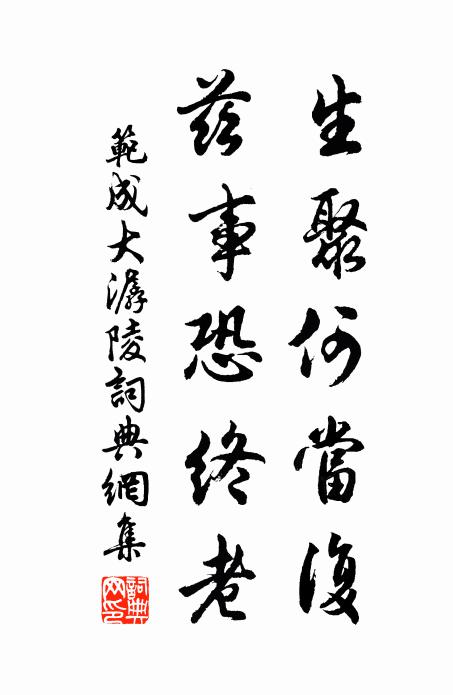 生聚何當復
茲事恐終老
範成大潺陵詞典網集
詞典網印